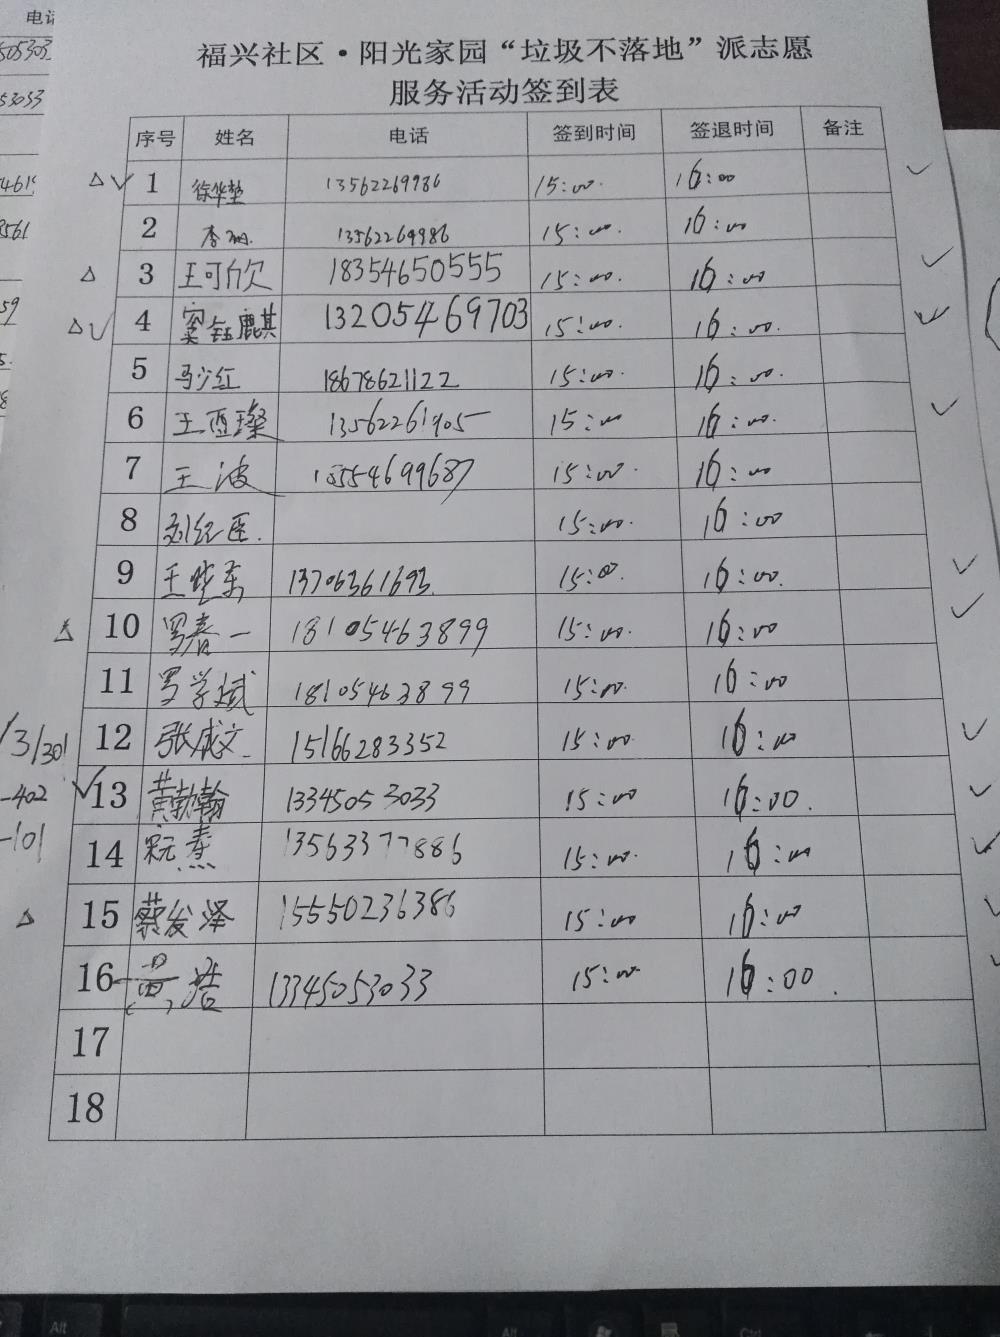 福兴社区·阳光家园“垃圾不落地”派志愿
服务活动签到表
序号 姓名 电话 签到时间 签退时间 备注
1 徐华堃 13562269986 15:00 16:00
2 李 13562269986 15:00 16:00
3 王可欣 18354650555 15:00 16:00
4 窦钰麒 13205469703 15:00 16:00
5 马少红 18678621122 15:00 16:00
6 王西璨 13562261905 15:00 16:00
7 王波 18554699687 15:00 16:00
8 刘红 15:00 16:00
9 王 13706361693 15:00 16:00
10 罗春一 18105463899 15:00 16:00
11 罗学斌 18105463899 15:00 16:00
12 张成文 15166283352 15:00 16:00
13 黄勃翰 13345053033 15:00 16:00
14 13563377886 15:00 16:00
15 蔡发泽 15550236386 15:00 16:00
16 黄浩 13345053033 15:00 16:00
17
18
3/301
-402
-101